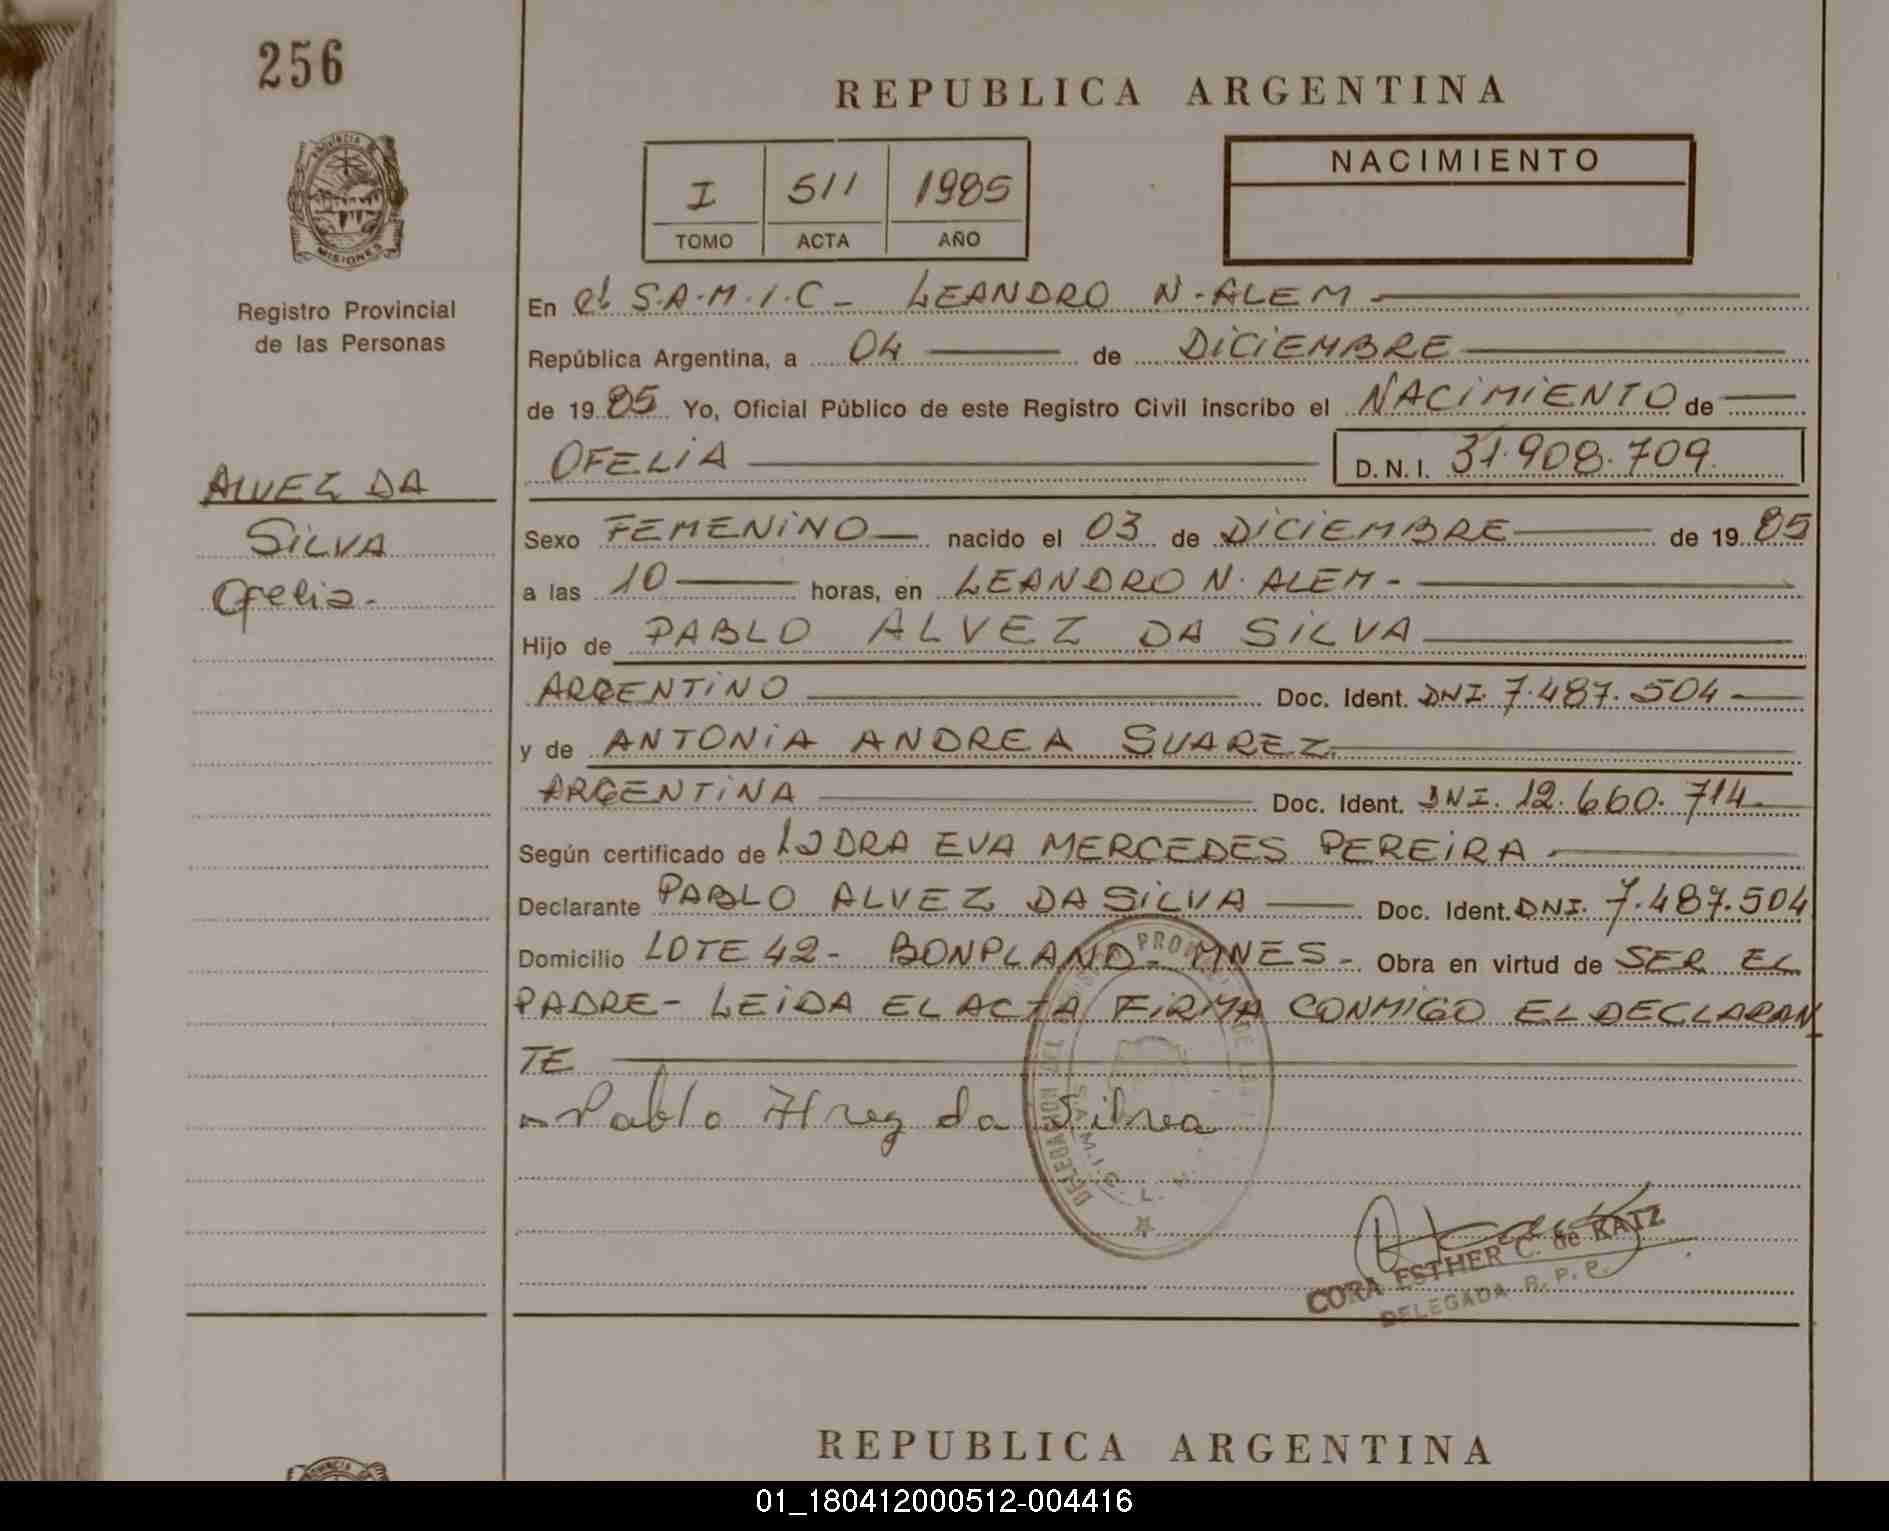 256
REPUBLICA ARGENTINA
PROVINCIA
MISIONES
Registro Provincial
de las Personas
I 511 1985
TOMO ACTA AÑO
NACIMIENTO
En el S.A.M.I.C - LEANDRO N. ALEM
República Argentina, a 04 de DICIEMBRE
de 19 85 Yo, Oficial Público de este Registro Civil inscribo el NACIMIENTO de
OFELIA D.N.I. 31.908.709
ALVEZ DA
SILVA
Ofelia.
Sexo FEMENINO nacido el 03 de DICIEMBRE de 19 85
a las 10 horas, en LEANDRO N. ALEM -
Hijo de PABLO ALVEZ DA SILVA
ARGENTINO Doc. Ident. DNI. 7.487.504
y de ANTONIA ANDREA SUAREZ
ARGENTINA Doc. Ident. DNI. 12.660.714
Según certificado de EVA MERCEDES PEREIRA
Declarante PABLO ALVEZ DA SILVA Doc. Ident. DNI. 7.487.504
Domicilio LOTE 42 - BONPLAND - MNES - Obra en virtud de SER EL
PADRE - LEIDA EL ACTA FIRMA CONMIGO EL DECLARAN
TE
Pablo da Silva
S.A.M.I.C. L.
CORA ESTHER C. de KATZ
DELEGADA R. P. P.
REPUBLICA ARGENTINA
01_180412000512-004416